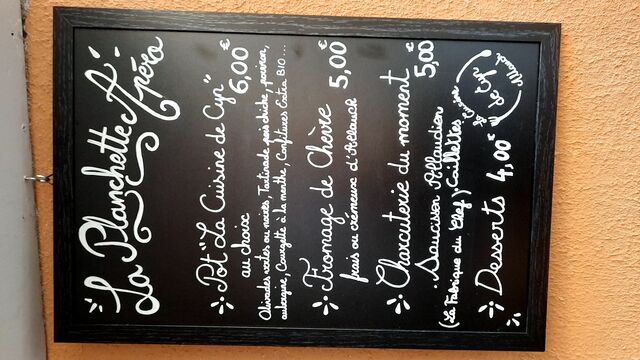 La Planchette
Apéro
Pot "La Cuisine de Cyn"
au choix 6,00 €
Olivades vertes ou noires, Tartinade pois chiche, poivron,
aubergine, Courgette à la menthe, Confitures Extra BIO...
Fromage de Chèvre
frais ou crémeux d'Allauch 5,00 €
Charcuterie du moment
. Saucisson Allaudien 5,00 €
(La Fabrique du Clef) Caillettes
Desserts 4,00 €
La Cuisine
de Cyn
Allauch